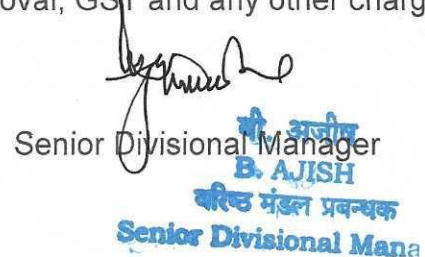 oval, GST and any other charg
Senior Divisional Manager
बी. अजीष
B. AJISH
वरिष्ठ मंडल प्रबन्धक
Senior Divisional Mana